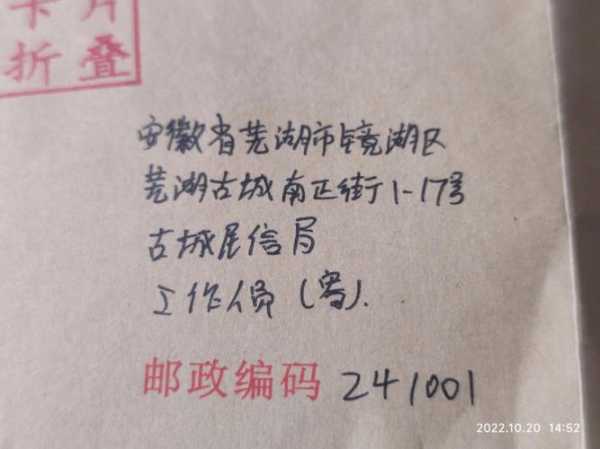 卡片
折叠
安徽省芜湖市镜湖区
芜湖古城南正街1-17号
古城尾信局
工作员(寄).
邮政编码 241001
2022.10.20 14:52